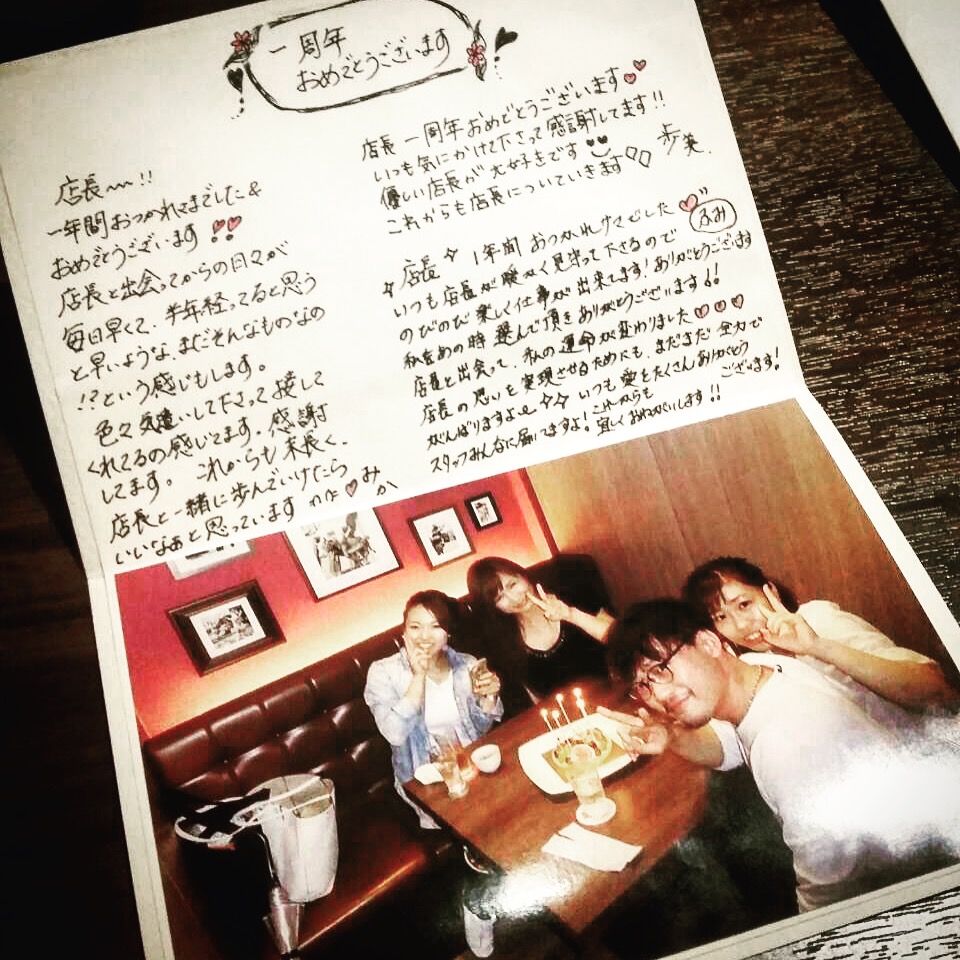 一周年
おめでとうございます
店長〜!!
一年間おつかれさまでした&
おめでとうございます!!
店長と出会ってからの日々が
毎日早くて、半年経ってると思う
と早いような、まだそんなものなの
!?という感じもします。
色々気遣いして下さって接して
くれてるの感じてます。感謝
してます。これからも末長く、
店長と一緒に歩んでいけたら
いいなぁと思っています
みか
店長 一周年おめでとうございます
いつも気にかけて下さって感謝してます!!
優しい店長が大好きです
これからも店長についていきます
歩美.
店長 1年間 おつかれサマでした
ふみ
いつも店長が暖かく見守って下さるので
のびのび楽しく仕事が出来てます!ありがとうございます
私をあの時選んで頂きありがとうございます!!
店長と出会って、私の運命が変わりました
店長の思いを実現させるためにも、まだまだ全力で
がんばりますよ
いつも愛をたくさんありがとう
ございます!
スタッフみんなに届いてますよ!これからも
宜しくおねがいします!!